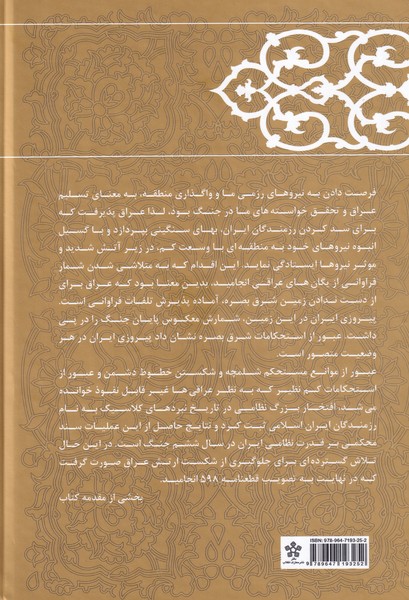 فرصت دادن به نیروهای رزمی ما و واگذاری منطقه، به معنای تسلیم
عراق و تحقق خواسته های ما در جنگ بود، لذا عراق پذیرفت که
برای سد کردن رزمندگان ایران، بهای سنگینی بپردازد و با گسیل
انبوه نیروهای خود به منطقه ای با وسعت کم، در زیر آتش شدید و
موثر نیروها ایستادگی نماید. این اقدام که به متلاشی شدن شمار
فراوانی از یگان های عراقی انجامید، بدین معنا بود که عراق برای
از دست ندادن زمین شرق بصره، آماده پذیرش تلفات فراوانی است.
پیروزی ایران در این زمین، شمارش معکوس پایان جنگ را در پی
داشت. عبور از استحکامات شرق بصره نشان داد پیروزی ایران در هر
وضعیت متصور است.
عبور از موانع مستحکم شلمچه و شکستن خطوط دشمن و عبور از
استحکامات کم نظیر که به نظر عراقی ها غیر قابل نفوذ خوانده
می شد، افتخار بزرگ نظامی در تاریخ نبردهای کلاسیک به نام
رزمندگان ایران اسلامی ثبت کرد و نتایج حاصل از این عملیات سند
محکمی بر قدرت نظامی ایران در سال ششم جنگ است. در این حال
تلاش گسترده ای برای جلوگیری از شکست ارتش عراق صورت گرفت
که در نهایت به تصویب قطعنامه ۵۹۸ انجامید.
بخشی از مقدمه کتاب
ISBN: 978-964-7193-25-2
9 789647 193252